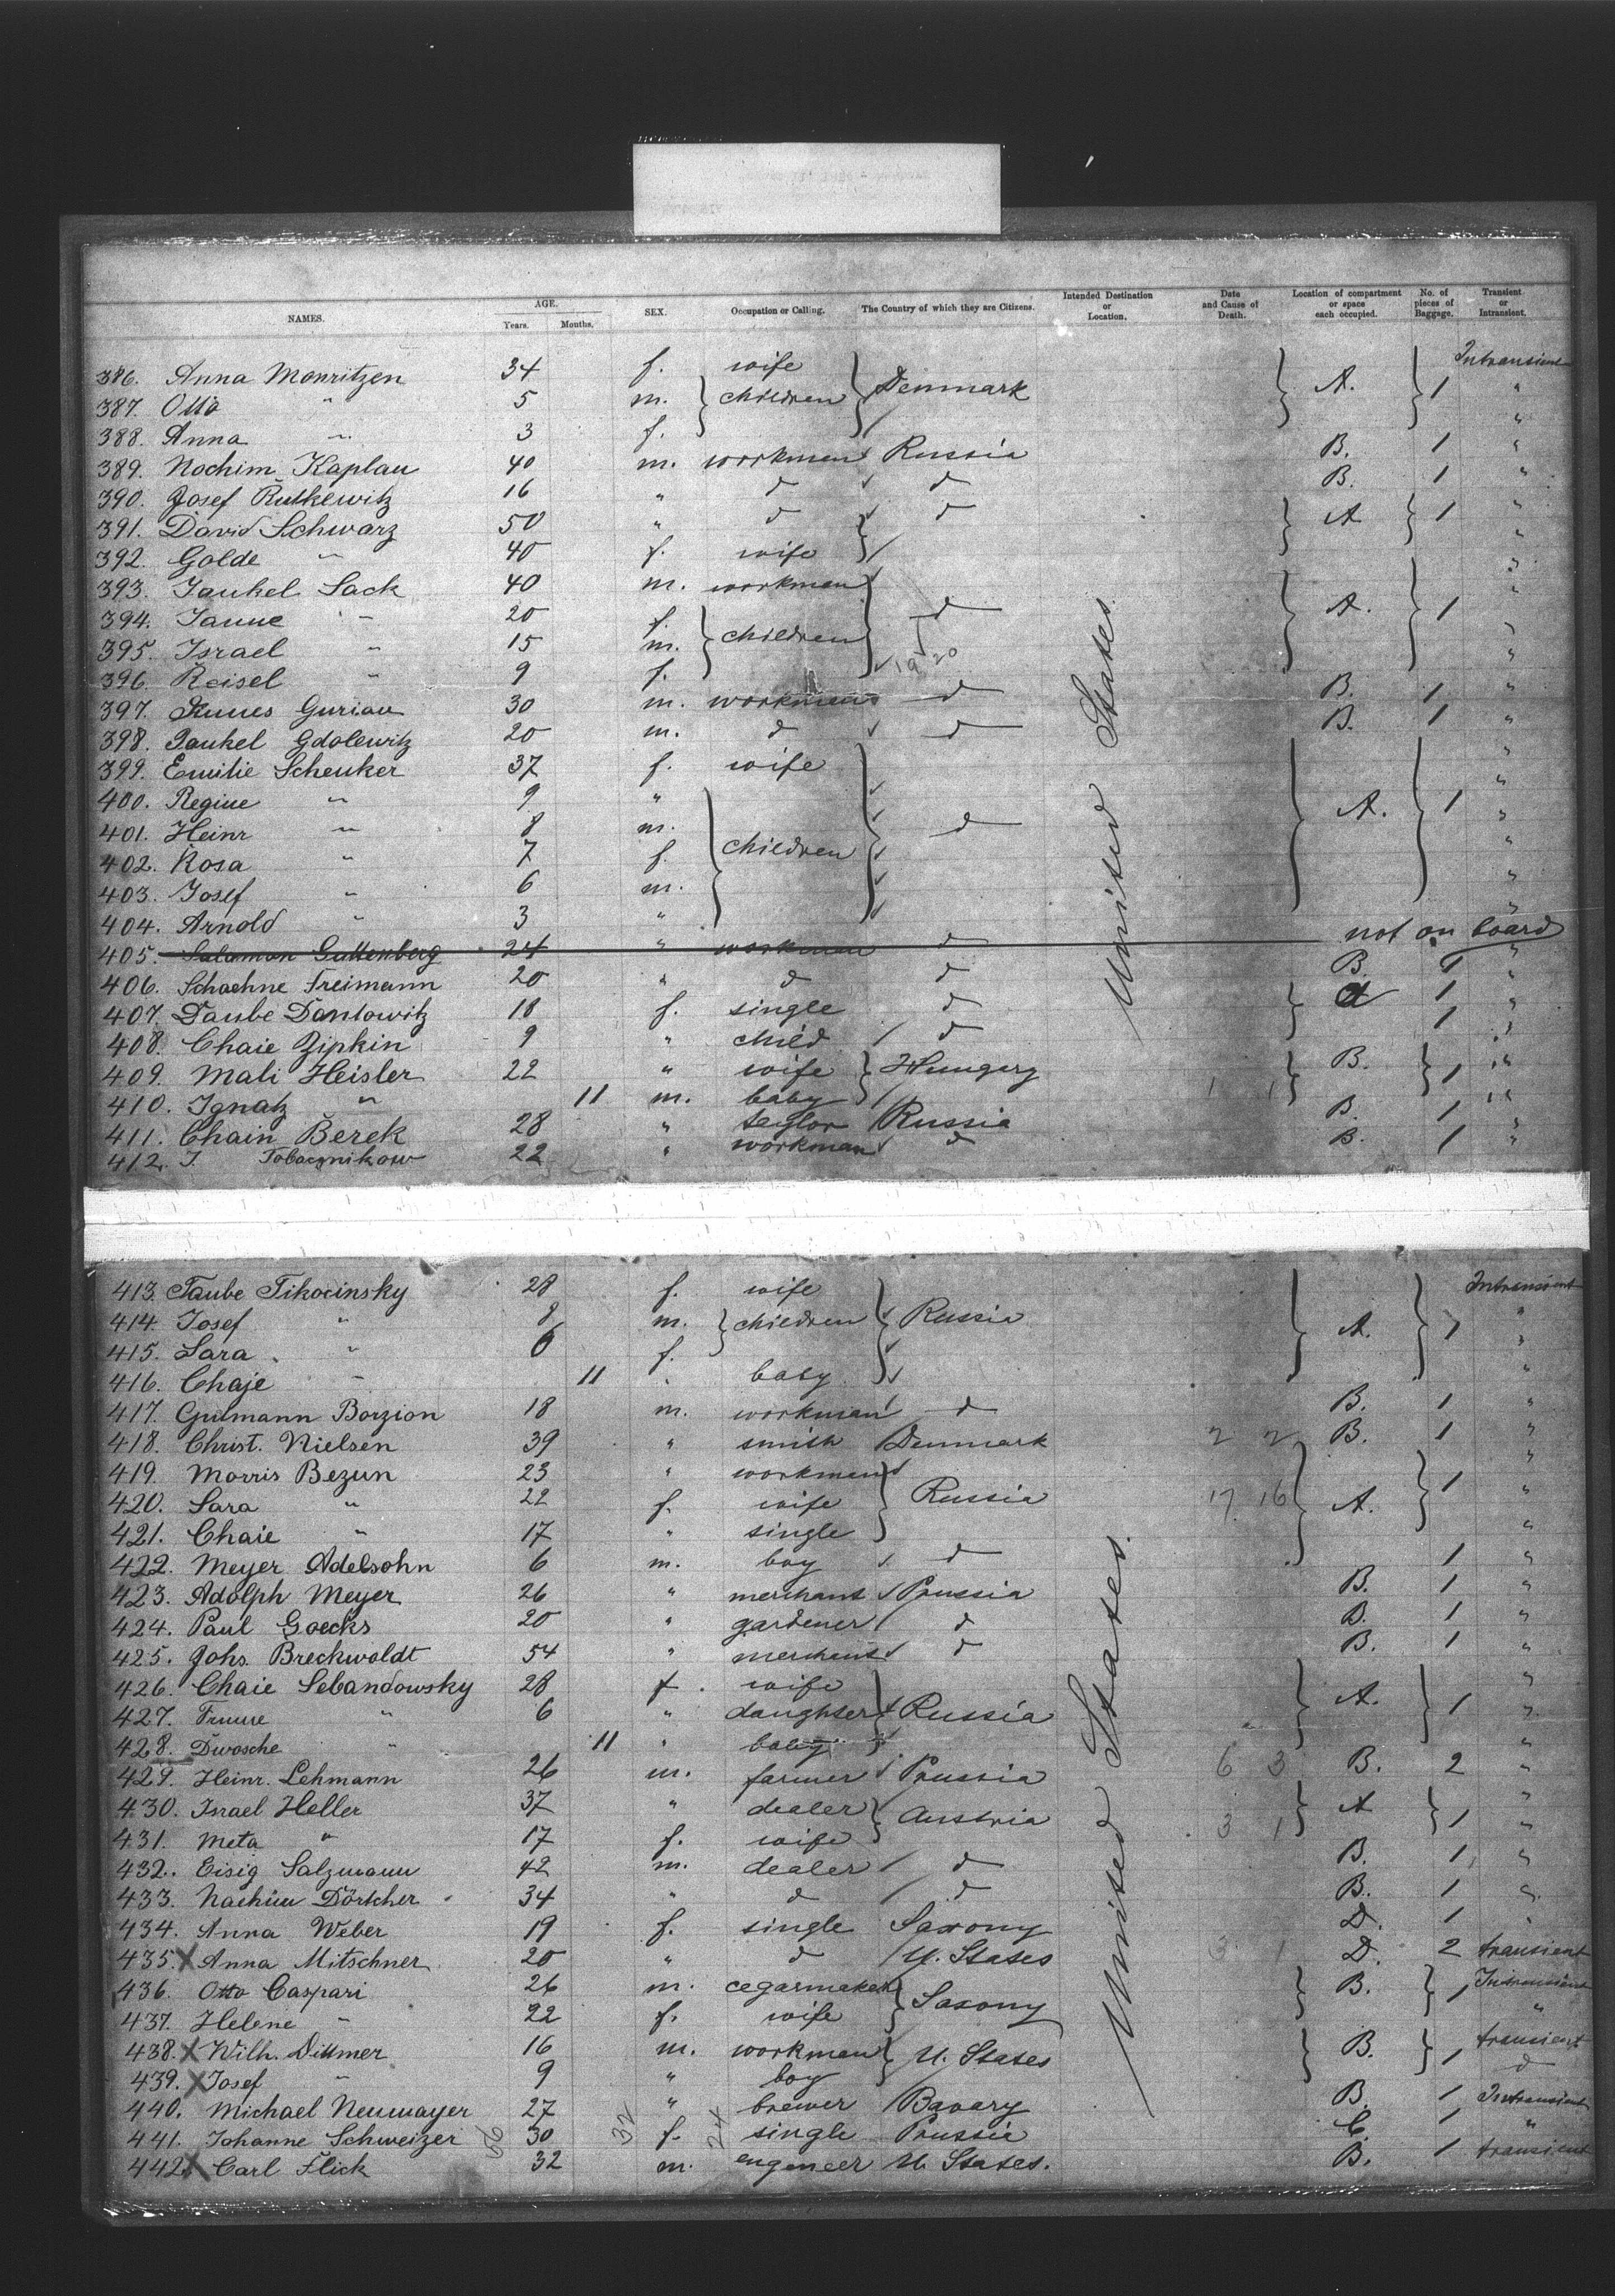 NAMES. AGE. Years. Months. SEX. Occupation or Calling. The Country of which they are Citizens. Intended Destination or Location. Date and Cause of Death. Location of compartment or space each occupied. No. of pieces of Baggage. Transient or Intransient.
386. Anna Monritzen 34 f. wife Denmark A. 1 Intransient
387. Otto " 5 m. children "
388. Anna " 3 f. "
389. Nochim Kaplan 40 m. workman Russia B. 1 "
390. Josef Rutkewitz 16 " d d B. 1 "
391. David Schwarz 50 " d d A 1 "
392. Golde " 40 f. wife "
393. Jankel Sack 40 m. workman d A. 1 "
394. Janne " 20 f. children "
395. Israel " 15 m. "
396. Reisel " 9 f. 19 20 "
397. Gurian 30 m. workman d B. 1 "
398. Jankel Gdalewitz 20 m. d d B. 1 "
399. Emilie Schenker 37 f. wife d A. 1 "
400. Regine " 9 " children "
401. Heinr " 8 m. "
402. Rosa " 7 f. "
403. Josef " 6 m. "
404. Arnold " 3 " "
405. Salamon Guttenberg 24 " workman d not on board
406. Schachne Freimann 20 " d d B. 1 "
407. Daube Dantowitz 18 f. single d A 1 "
408. Chaie Zipkin 9 " child d 1 "
409. Mali Heisler 22 " wife Hungary 1 1 B. 1 "
410. Ignatz " 11 m. baby "
411. Chain Berek 28 " teylor Russia B. 1 "
412. J. Tobacznikow 22 " workman d B. 1 "
United States
413. Taube Tikocinsky 28 f. wife Russia A. 1 Intransient
414. Josef " 8 m. children "
415. Sara " 6 f. "
416. Chaje " 11 " baby "
417. Gutmann Borzion 18 m. workman d B. 1 "
418. Christ. Nielsen 39 " smith Denmark 2 2 B. 1 "
419. Morris Bezun 23 " workman Russia A. 1 "
420. Sara " 22 f. wife 17 16 "
421. Chaie " 17 " single "
422. Meyer Adelsohn 6 m. boy d 1 "
423. Adolph Meyer 26 " merchant Prussia B. 1 "
424. Paul Goecks 20 " gardener d B. 1 "
425. Johs. Breckwoldt 54 " merchant d B. 1 "
426. Chaie Lebandowsky 28 f. wife Russia A. 1 "
427. " 6 " daughter "
428. Dwosche " 11 " baby "
429. Heinr. Lehmann 26 m. farmer Prussia 6 3 B. 2 "
430. Israel Heller 37 " dealer Austria A 1 "
431. Meta " 17 f. wife 3 1 "
432. Eisig Salzmann 42 m. dealer d B. 1 "
433. Nachim Dörtcher 34 " d d B. 1 "
434. Anna Weber 19 f. single Saxony D. 1 "
435. X Anna Mitschner 20 " d U. States 3 1 D. 2 transient
436. Otto Caspari 26 m. cegarmaker Saxony B. 1 Intransient
437. Helene " 22 f. wife "
438. X Wilh. Dittmer 16 m. workman U. States B. 1 transient
439. X Josef " 9 " boy d
440. Michael Neumayer 27 " brewer Bavary B. 1 Intransient
441. Johanne Schweizer 66 30 32 f. 24 single Prussia C. 1 "
442. X Carl Flick 32 m. engeneer U. States. B. 1 transient
United States.